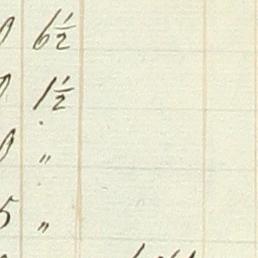 0 6½
0 1½
0 "
5 "